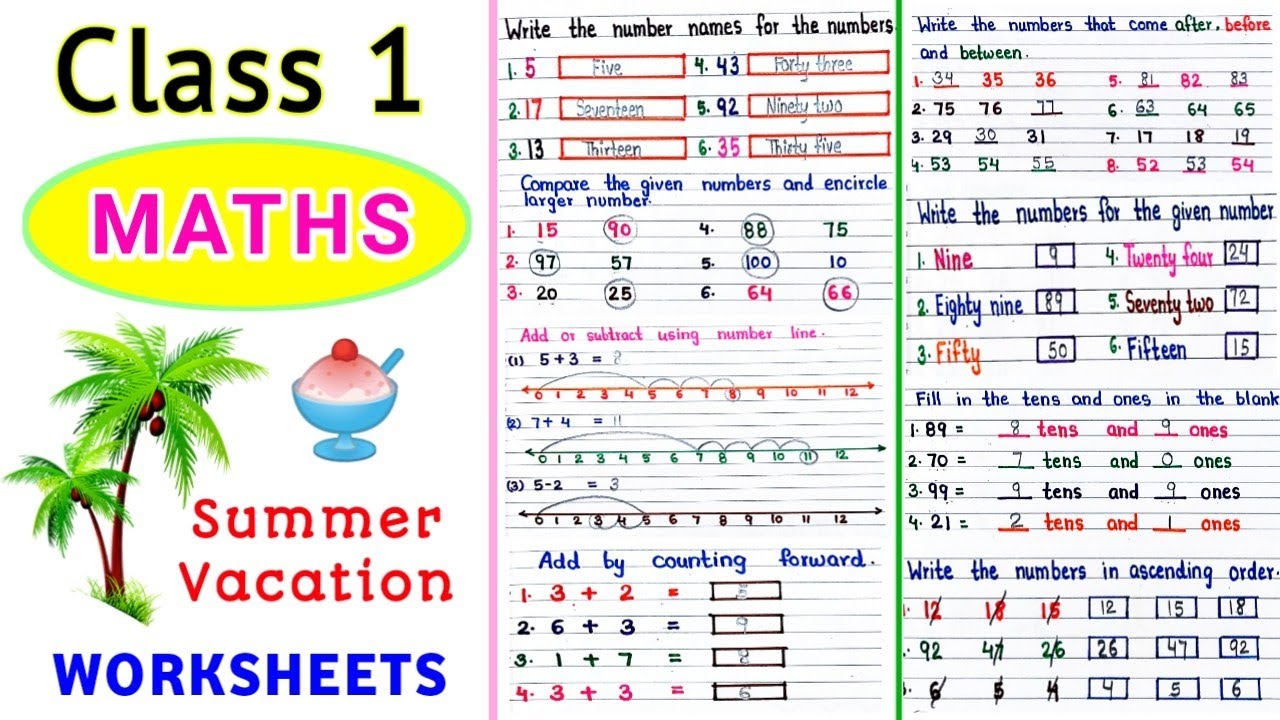 Class 1
MATHS
Summer
Vacation
WORKSHEETS
Write the number names for the numbers.
1. 5 Five 4. 43 Forty three
2. 17 Seventeen 5. 92 Ninety two
3. 13 Thirteen 6. 35 Thirty five
Compare the given numbers and encircle
larger number.
1. 15 90 4. 88 75
2. 97 57 5. 100 10
3. 20 25 6. 64 66
Add or subtract using number line.
(1) 5 + 3 = 8
0 1 2 3 4 5 6 7 8 9 10 11 12
(2) 7 + 4 = 11
0 1 2 3 4 5 6 7 8 9 10 11 12
(3) 5 - 2 = 3
0 1 2 3 4 5 6 7 8 9 10 11 12
Add by counting forward.
1. 3 + 2 = 5
2. 6 + 3 = 9
3. 1 + 7 = 8
4. 3 + 3 = 6
Write the numbers that come after, before
and between.
1. 34 35 36 5. 81 82 83
2. 75 76 77 6. 63 64 65
3. 29 30 31 7. 17 18 19
4. 53 54 55 8. 52 53 54
Write the numbers for the given number
1. Nine 9 4. Twenty four 24
2. Eighty nine 89 5. Seventy two 72
3. Fifty 50 6. Fifteen 15
Fill in the tens and ones in the blank
1. 89 = 8 tens and 9 ones
2. 70 = 7 tens and 0 ones
3. 99 = 9 tens and 9 ones
4. 21 = 2 tens and 1 ones
Write the numbers in ascending order.
12 18 15 12 15 18
92 47 26 26 47 92
6 5 4 4 5 6